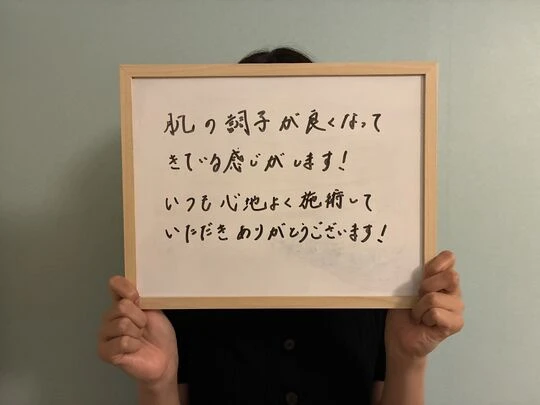 肌の調子が良くなって
きている感じがします!
いつも心地よく施術して
いただきありがとうございます!